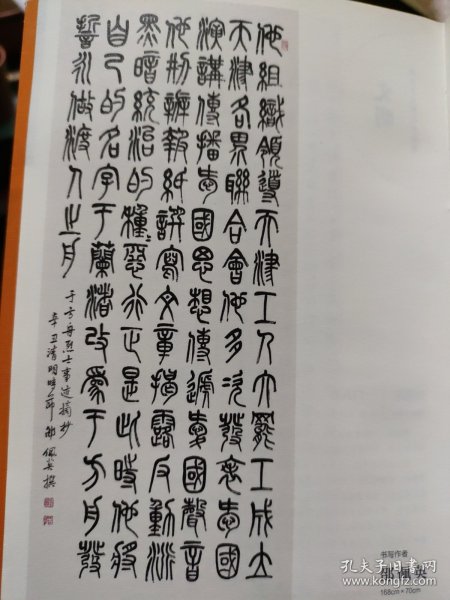 他組織領導天津工人大罷工成立
天津各界聯合會他多次發表愛國
演講傳播愛國思想傳遞愛國聲音
他創辦報紙撰寫文章揭露反動派
黑暗統治的種〻惡行正是此時他將
自己的名字于蘭渚改爲于方舟發
誓永做渡人之舟
于方舟烈士事迹摘抄
辛丑清明時節
书写作者
168cm×70cm
孔夫子旧书网